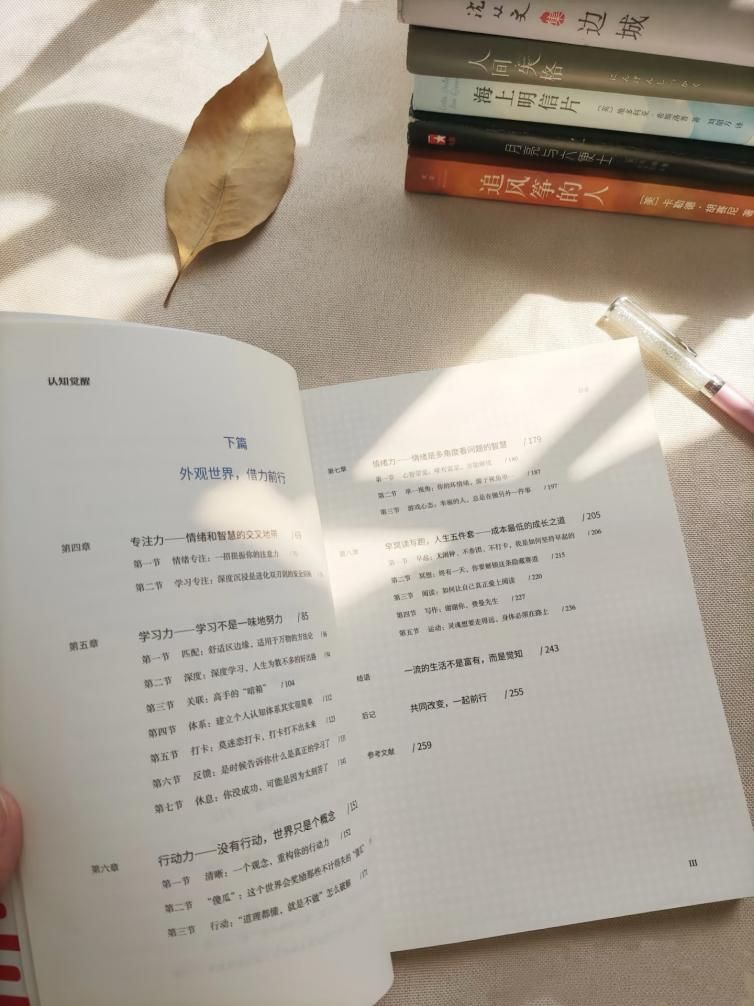 沈从文 集 边城
人间失格 にんげんしっかく
海上明信片
月亮与六便士
追风筝的人 [美] 卡勒德·胡赛尼 著
认知觉醒
下篇
外观世界，借力前行
第四章 专注力——情绪和智慧的交叉地带 / 69
第一节 情绪专注：一招提振你的注意力
第二节 学习专注：深度沉浸是进化双刃剑的安全剑柄
第五章 学习力——学习不是一味地努力 / 85
第一节 匹配：舒适区边缘，适用于万物的方法论 / 86
第二节 深度：深度学习，人生为数不多的好出路 / 94
第三节 关联：高手的“暗箱” / 104
第四节 体系：建立个人认知体系其实很简单 / 112
第五节 打卡：莫迷恋打卡，打卡打不出未来 / 123
第六节 反馈：是时候告诉你什么是真正的学习了 / 131
第七节 休息：你没成功，可能是因为太刻苦了 / 141
第六章 行动力——没有行动，世界只是个概念 / 152
第一节 清晰：一个观念，重构你的行动力 / 152
第二节 “傻瓜”：这个世会奖励那些不计得失的“傻瓜”
第三节 行动：“道理都懂，就是不做”怎么破解 / 171
目录
第七章 情绪力——情绪是多角度看问题的智慧 / 179
第一节 心智带宽：唯有富足，方能解忧 / 180
第二节 单一视角：你的坏情绪，源于视角单一 / 187
第三节 游戏心态：幸福的人，总是在做另外一件事 / 197
第八章 早冥读写跑，人生五件套——成本最低的成长之道 / 205
第一节 早起：无闹钟、不参团、不打卡，我是如何坚持早起的 / 206
第二节 冥想：终有一天，你要解锁这条隐藏赛道 / 215
第三节 阅读：如何让自己真正爱上阅读 / 220
第四节 写作：谢谢你，费曼先生 / 227
第五节 运动：灵魂想要走得远，身体必须在路上 / 236
结语 一流的生活不是富有，而是觉知 / 243
后记 共同改变，一起前行 / 255
参考文献 / 259
III